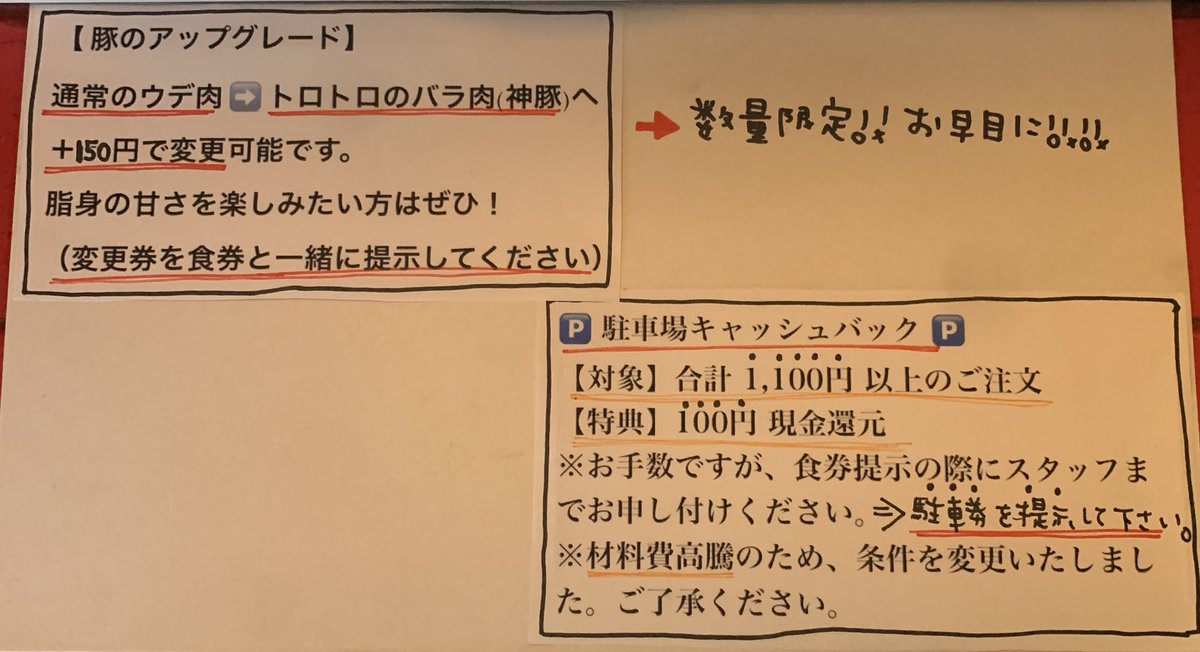 【豚のアップグレード】
通常のウデ肉➡トロトロのバラ肉(神豚)へ
+150円で変更可能です。
脂身の甘さを楽しみたい方はぜひ！
（変更券を食券と一緒に提示してください）
→ 数量限定!! お早目に!!!!
🅿 駐車場キャッシュバック 🅿
【対象】合計 1,100円 以上のご注文
【特典】100円 現金還元
※お手数ですが、食券提示の際にスタッフま
でお申し付けください。⇒駐車券を提示して下さい。
※材料費高騰のため、条件を変更いたしまし
た。ご了承ください。